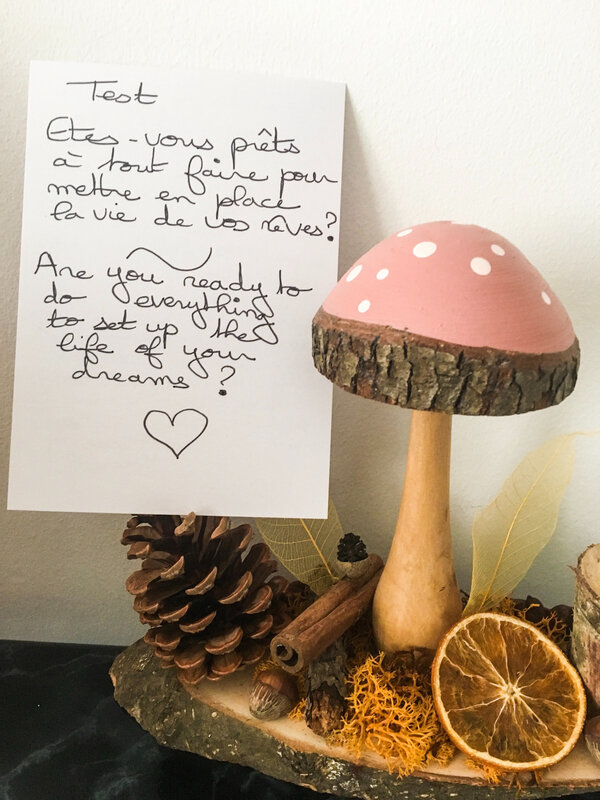 Test
Etes-vous prêts
à tout faire pour
mettre en place
la vie de vos rêves?
Are you ready to
do everything
to set up the
life of your
dreams ?